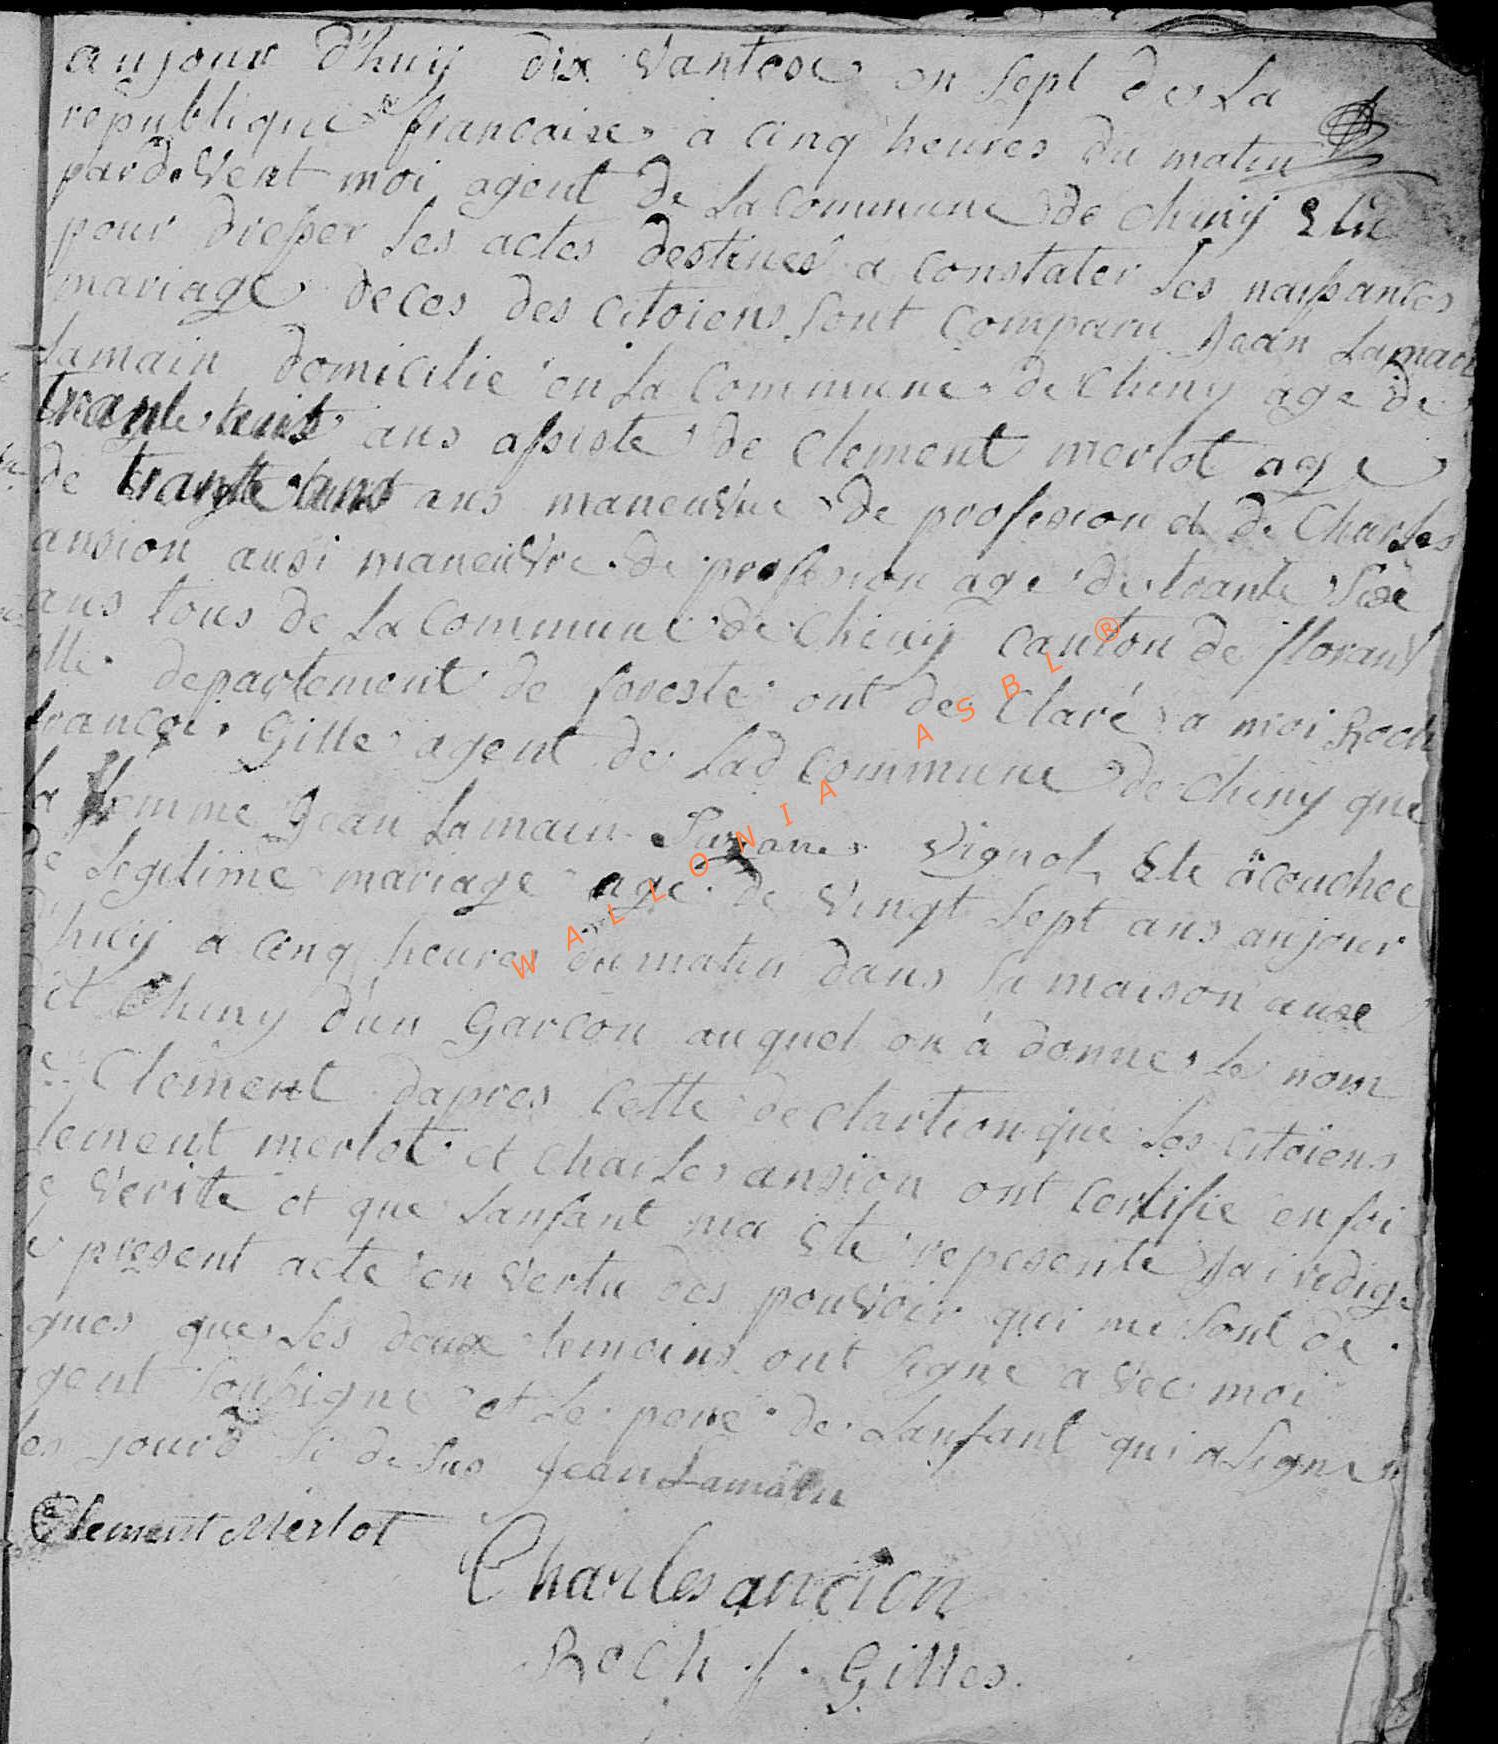 aujour d'huij dix vantose en sept de La
republique francaise a cinq heures du matin
pardevent moi agent de La commune de chinij Elu
pour dresser Les actes destinés a constater Les naissances
mariage deces des citoiens sont comparu Jean Lamain
Lamain domicilie en La commune de chiny age de
trante huit ans assiste de Clement merlot age
de trante ans maneuvre de profesion et de Charles
ansion ausi maneuvre de profesion age de trante Sixe
ans tous de La Commune de Chinij canton de floranv
ille departement de foreste ont de Claré a moi Roch
francoi Gille agent de Lad commune de chiny que
La femme Jean Lamain Suzane Vignol Ete acouchee
de Legitime mariage age de vingt Sept ans aujour
d'huij a cinq heures du matin dans sa maison auxe
dit Chiny d'un Garcon auquel on à donne Le nom
de Clement dapres Cette declartion que Les citoiens
Clement merlot et Charles ansion ont certifie en foi
de verite et que Lanfant ma Ete repesente Jai redige
Le present acte en vertu des pouvoir qui me sont de
gues que Les deux temoins ont signe avec moi
agent sousigne et Le pere de Lanfant qui a signe
Les jourd si desus Jean Lamain
Clement Merlot
Charles ancion
Roch f. Gilles.
WALLONIA ASBL ®